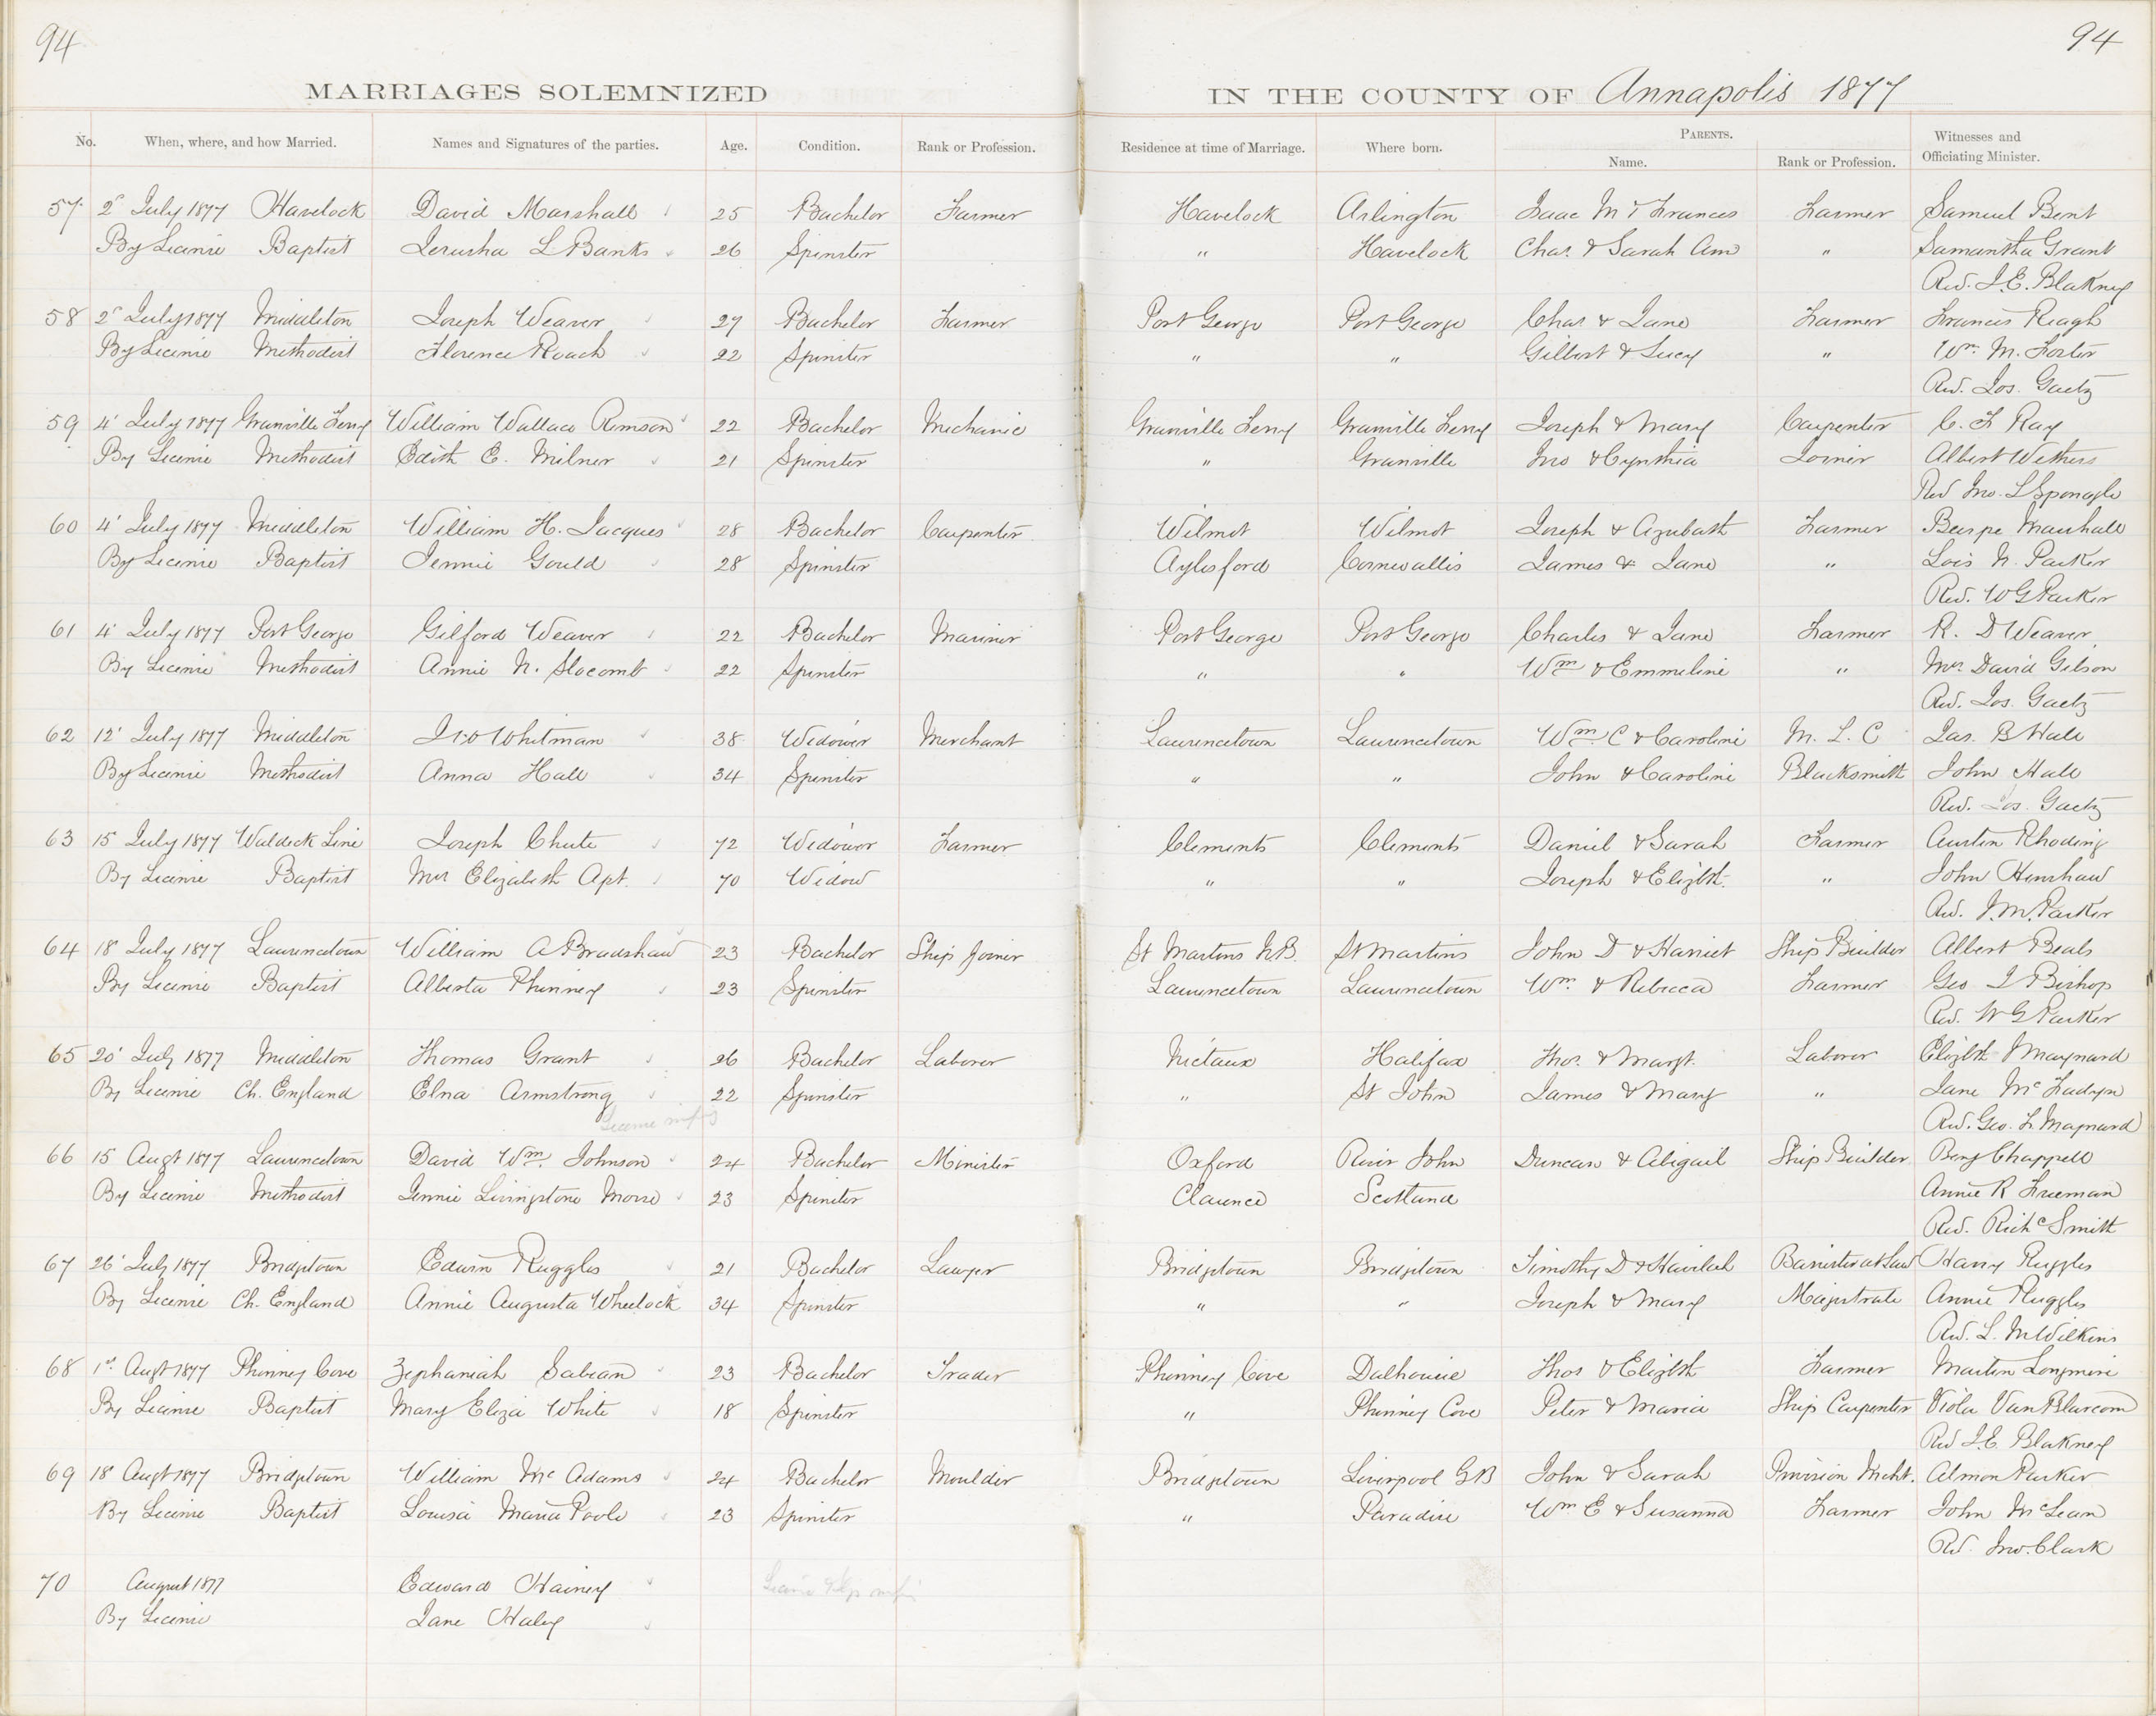 94 94
MARRIAGES SOLEMNIZED IN THE COUNTY OF Annapolis 1877
No. When, where, and how Married. Names and Signatures of the parties. Age. Condition. Rank or Profession. Residence at time of Marriage. Where born. PARENTS. Name. Rank or Profession. Witnesses and Officiating Minister.
57 2" July 1877 Havelock David Marshall 25 Bachelor Farmer Havelock Arlington Isaac M & Frances Farmer Samuel Bent
By License Baptist Jerusha L Banks 26 Spinster " Havelock Chas. & Sarah Ann " Samantha Grant
Rev. I. E. Blakney
58 2" July 1877 Middleton Joseph Weaver 27 Bachelor Farmer Port George Port George Chas & Jane Farmer Francis Reagh
By License Methodist Florence Roach 22 Spinster " " Gilbert & Lucy " Wm. M. Foster
Rev. Jos. Gaetz
59 4' July 1877 Granville Ferry William Wallace Rimson 22 Bachelor Mechanic Granville Ferry Granville Ferry Joseph & Mary Carpenter C. F Ray
By License Methodist Edith E. Milner 21 Spinster " Granville Jno & Cynthia Joiner Albert Withers
Rev Jno. L Sponagle
60 4' July 1877 Middleton William H. Jacques 28 Bachelor Carpenter Wilmot Wilmot Joseph & Azubath Farmer Burpe Marshall
By License Baptist Jennie Gould 28 Spinster Aylesford Cornwallis James & Jane " Lois N. Parker
Rev. W G Parker
61 4' July 1877 Port George Gilford Weaver 22 Bachelor Mariner Port George Port George Charles & Jane Farmer R. D Weaver
By License Methodist Annie N. Slocomb 22 Spinster " " Wm & Emmeline " Mrs. David Gibson
Rev. Jos. Gaetz
62 12' July 1877 Middleton Whitman 38 Widower Merchant Laurencetown Laurencetown Wm. C & Caroline M. L. C Jas. B Hall
By License Methodist Anna Hall 34 Spinster " " John & Caroline Blacksmith John Hall
Rev. Jos. Gaetz
63 15 July 1877 Waldeck Line Joseph Chute 72 Widower Farmer Clements Clements Daniel & Sarah Farmer Austin Rhoding
By License Baptist Mrs Elizabeth Apt. 70 Widow " " Joseph & Elizbth. " John Henshaw
Rev. J. M. Parker
64 18 July 1877 Laurencetown William A Bradshaw 23 Bachelor Ship Joiner St Martins N.B. St Martins John D & Harriet Ship Builder Albert Beals
By License Baptist Alberta Phinney 23 Spinster Laurencetown Laurencetown Wm. & Rebecca Farmer Geo I Bishop
Rev. W G Parker
65 20' July 1877 Middleton Thomas Grant 26 Bachelor Laborer Nictaux Halifax Thos. & Margt. Laborer Elizbth J Maynard
By License Ch. England Elna Armstrong 22 Spinster " St John James & Mary " Jane McFadyn
License Rev. Geo. F. Maynard
66 15 Augt 1877 Laurencetown David Wm. Johnson 24 Bachelor Minister Oxford River John Duncan & Abigail Ship Builder Benj Chappell
By License Methodist Jennie Livingstone Morse 23 Spinster Clarence Scotland Annie R Freeman
Rev. Richd Smith
67 26' July 1877 Bridgetown Edwin Ruggles 21 Bachelor Lawyer Bridgetown Bridgetown Timothy D & Barrister at Law Harry Ruggles
By License Ch. England Annie Augusta Wheelock 34 Spinster " " Joseph & Mary Magistrate Annie Ruggles
Rev. L. M Wilkins
68 1st. Augt 1877 Phinney Cove Zephaniah Sabean 23 Bachelor Trader Phinney Cove Dalhousie Thos & Elizbth Farmer Martin Longmire
By License Baptist Mary Eliza White 18 Spinster " Phinney Cove Peter & Maria Ship Carpenter Viola Van Blarcom
Rev I. E. Blakney
69 18 Augt 1877 Bridgetown William McAdams 24 Bachelor Moulder Bridgetown Liverpool G B John & Sarah Provision Mcht. Almon Parker
By License Baptist Louisa Maria Poole 23 Spinster " Paradise Wm E & Susanna Farmer John McLean
Rev. Jno. Clark
70 August 1877 Edward Hainey License
By License Jane Haley